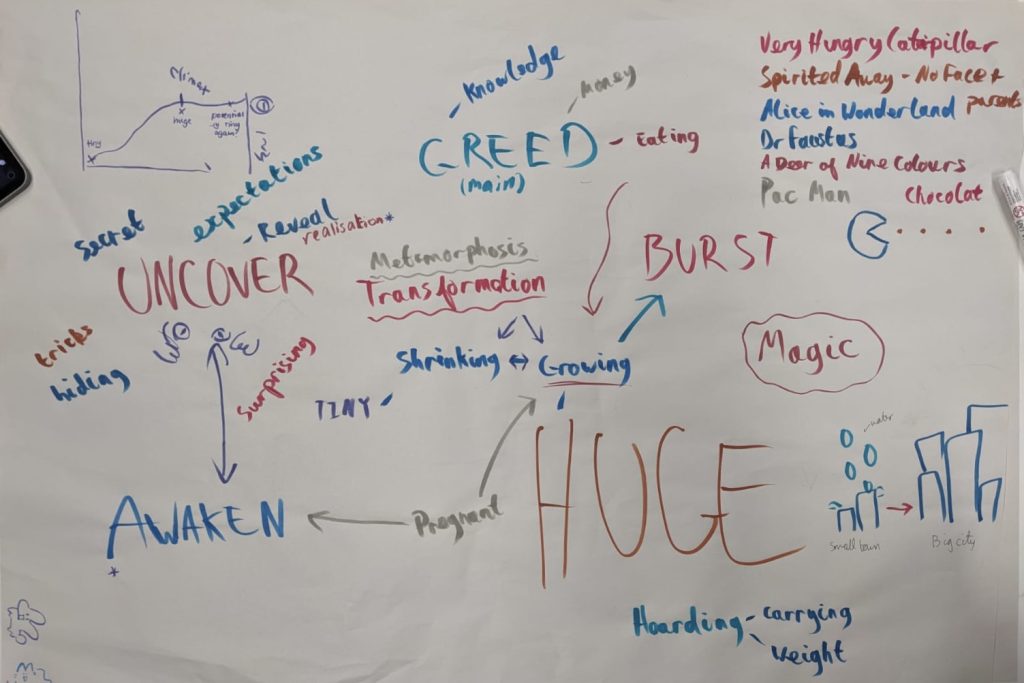 Climax
tiny
huge
potential
-ly tiny
again?
Knowledge
Money
GREED - Eating
(main)
Very Hungry Caterpillar
Spirited Away - No Face +
parents
Alice in Wonderland
Dr Faustas
A Deer of Nine Colours
Pac Man
Chocolat
secret
expectations
- Reveal
realisation*
UNCOVER
Metamorphosis
Transformation
BURST
tricks
hiding
surprising
Shrinking ↔ Growing
TINY
Magic
HUGE
water
small town
Big city
AWAKEN
*
Pregnant
Hoarding - carrying
weight